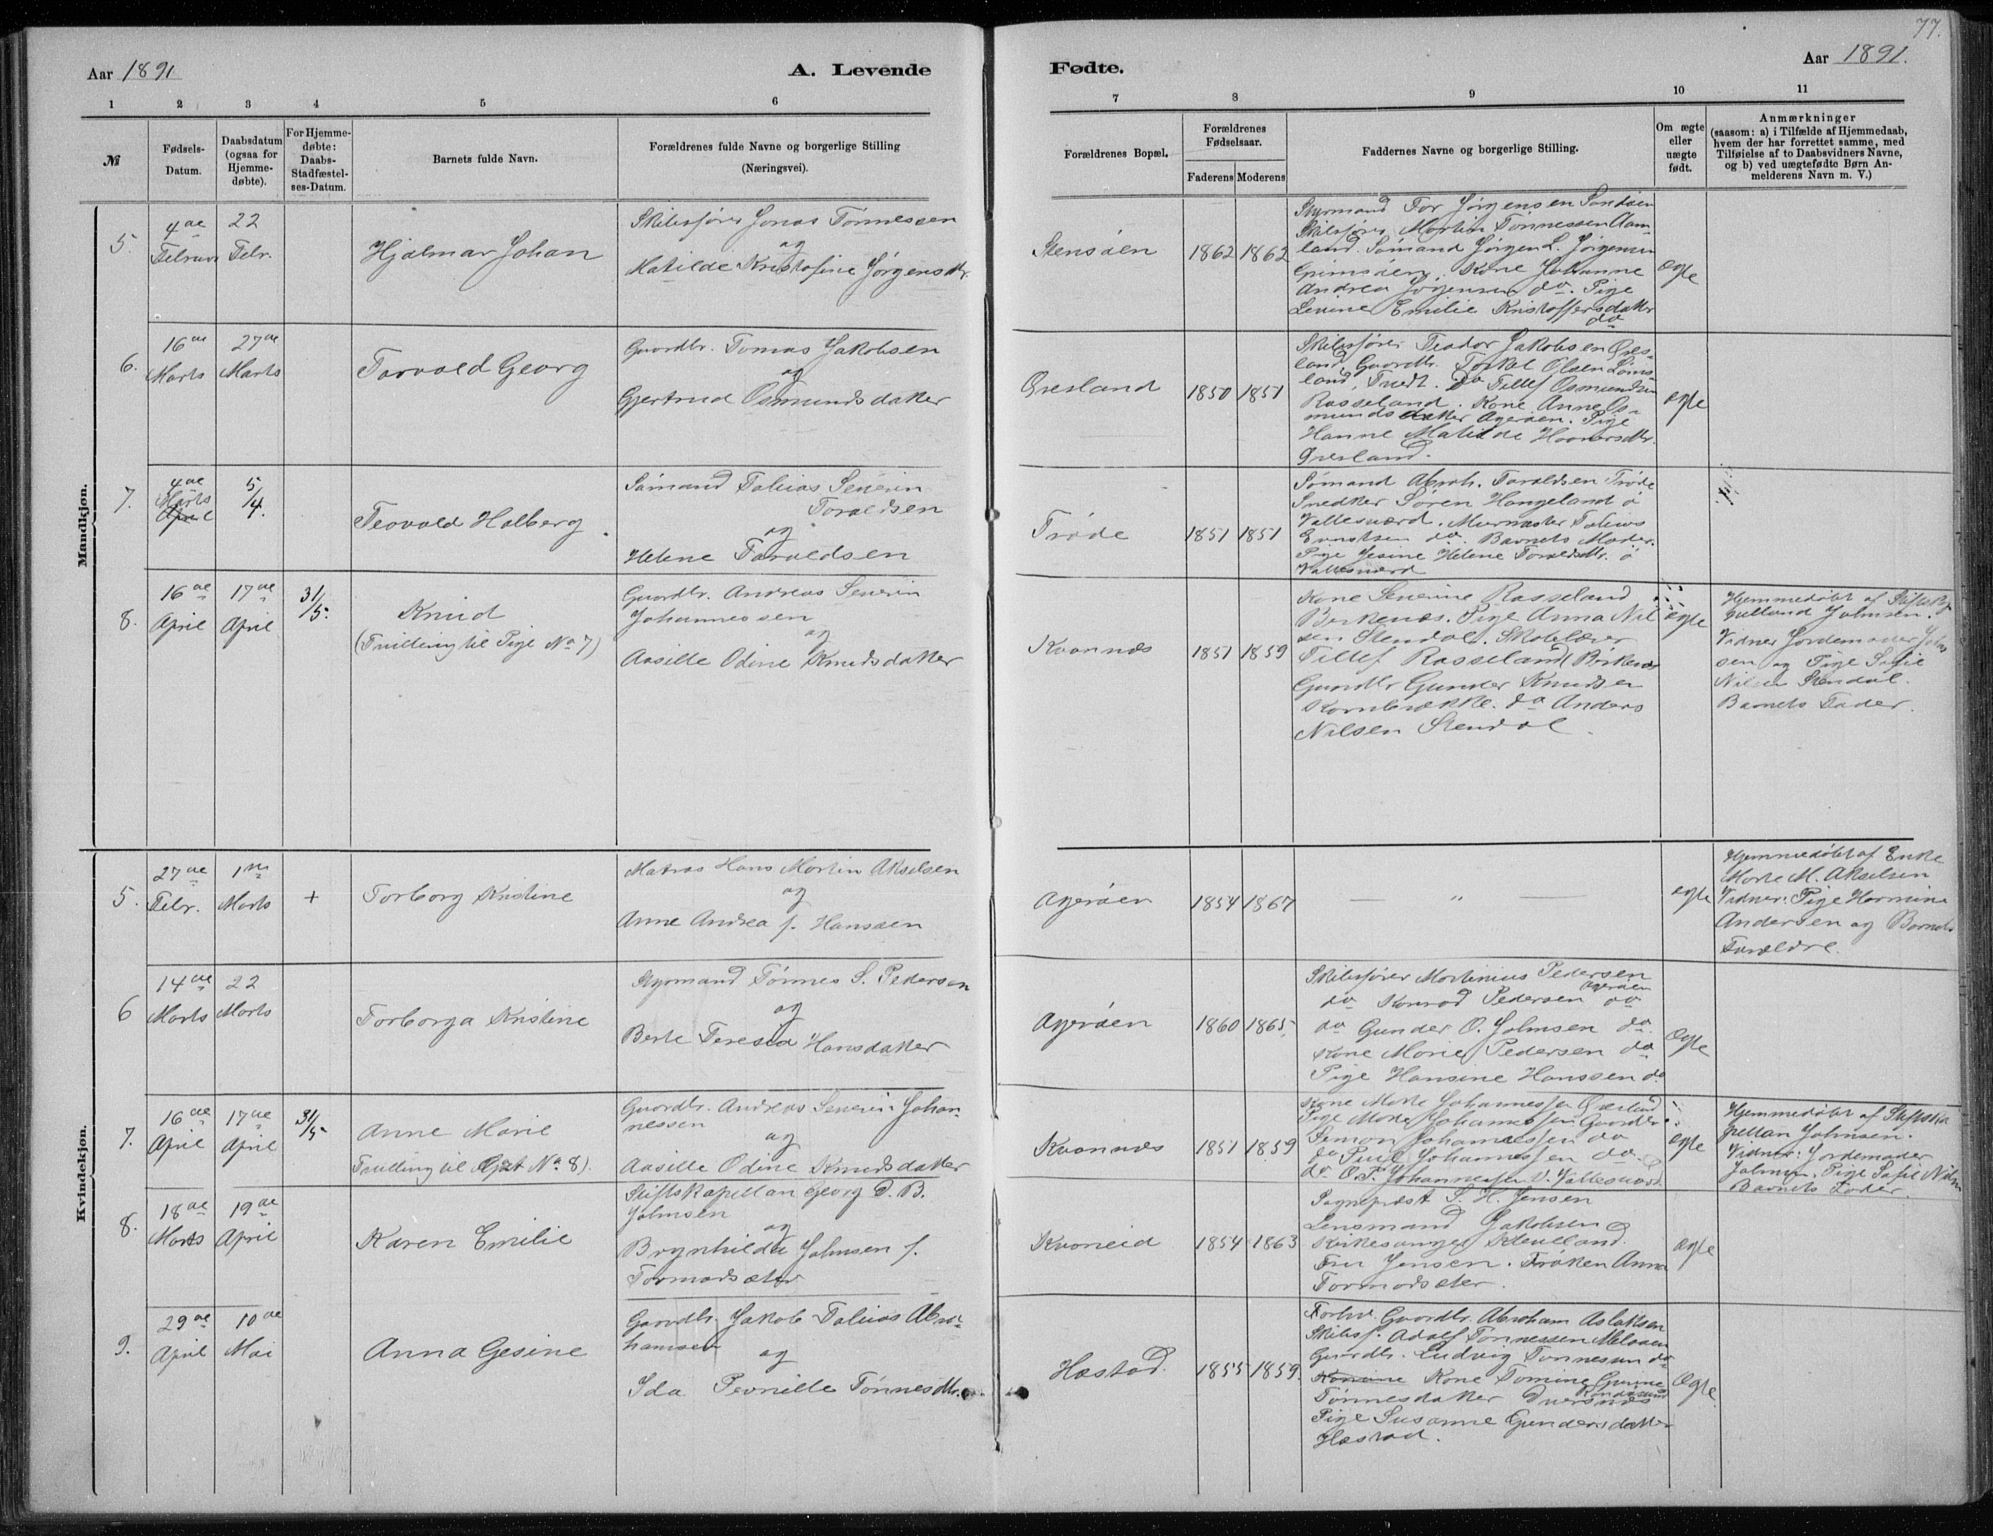 77.
Aar 1891
A. Levende
Fødte.
Aar 1891.
1 2 3 4 5 6 7 8 9 10 11
№
Fødsels-
Datum.
Daabsdatum
(ogsaa for
Hjemme-
døbte).
For Hjemme-
døbte:
Daabs-
Stadfæstel-
ses-Datum.
Barnets fulde Navn.
Forældrenes fulde Navne og borgerlige Stilling
(Næringsvei).
Forældrenes Bopæl.
Forældrenes
Fødselsaar.
Faderens Moderens
Faddernes Navne og borgerlige Stilling.
Om ægte
eller
uægte
født.
Anmærkninger
(saasom: a) i Tilfælde af Hjemmedaab,
hvem der har forrettet samme, med
Tilføielse af to Daabsvidners Navne,
og b) ved uægtefødte Børn An-
melderens Navn m. V.)
Mandkjøn.
5.
4de
Februar
22
Febr.
Hjalmar Johan
Skibsfører Jonas Tønnessen
og
Matilde Kristofine Jørgensdtr.
Stensøen
1862 1862
Styrmand Tor Jørgensen
Skibsfører Martin Tønnessen Aam-
land. Sømand Jørgen L. Jørgensen
Grimsøen. Kone Johanne
Andrea Jørgensen do. Pige
Levine Emilie Kristoffersdatter
do
ægte
6.
16de
Marts
27de
Marts
Torvald Georg
Gaardbr. Tomas Jakobsen
og
Gjertrud Osmundsdatter
Øresland
1850 1851
Skibsfører Teodor Jakobsen Øres-
land, Gaardbr. Torkel Olsen
land, do Tellef Osmundsen
Rosseland. Kone Anne Os-
mundsdatter Agerøen. Pige
Hanne Matilde
Øresland.
ægte
7.
4de
Marts
April
5/4.
Teovald Holberg
Sømand Tobias Severin
Taraldsen
og
Helene Taraldsen
Trøde
1851 1851
Sømand Abrah. Taraldsen Trøde
Snedker Søren Haugeland ø
Vallesværd. Murmester Tobias
Evertsen do. Barnets Moder.
Pige Jesine Helene Taraldsdtr. ø
Vallesværd
8.
16de
April
17de
April
31/5.
Knud
(Tvilling til Pige No 7)
Gaardbr. Andreas Severin
Johannessen
og
Aasille Odine Knudsdatter
Kvannes
1851 1859
Kone Severine Rosseland
Birkenæs. Pige Anna Nil
sen Stendal. Skolelærer
Tellef Rosseland Birkenæs
Gaardbr Gunder Knudsen
Kornbrække. do Anders
Nilsen Stendal.
ægte
Hjemmedøbt af Stiftska
pelland Johnsen.
Vidner Jordemoder Johns
sen og Pige Sofie
Nilsen Stendal.
Barnets Fader.
Kvindekjøn.
5.
27de
Febr.
1ste
Marts
+
Torborg Kristine
Matros Hans Martin Akselsen
og
Anne Andrea f. Hanssen
Agerøen
1854 1867
— „ —
ægte
Hjemmedøbt af Enke
Marte M. Akselsen
Vidner: Pige Hermine
Andersen og Barnets
Forældre.
6
14de
Marts
22
Marts
Torborga Kristine
Styrmand Tønnes S. Pedersen
og
Berte Teresia Hansdatter
Agerøen
1860 1865.
Skibsfører Martinius Pedersen
Agerøen
do Konrad Pedersen do
do Gunder O. Johnsen do.
Kone Marie Pedersen do
Pige Hansine Hanssen do
Ægte
7.
16de
April
17de
April
31/5
Anne Marie
Tvilling til Gut No 8).
Gaardbr. Andreas Severin Johan
nessen
og
Aasille Odine Knudsdatter
Kvannes
1851 1859
Kone Marte Johannessen Øresland
Pige Marte Johannessen Gaardbr.
Simon Johannessen do
do Paul Johannessen do.
do O. P. Johannessen V. Vallesværd
ægte
Hjemmedøbt af Stiftska
pellan Johnsen.
Vidner: Jordemoder
Johnsen. Pige Sofie Nilsen
Barnets Fader.
8.
18de
Marts
19de
April
Karen Emilie
Stiftskapellan Georg D. B.
Johnsen
og
Brynhilda Johnsen f.
Tormodsæter
Kvoneid
1854 1863
Sognepræst S. H. Jensen
Lensmand Jakobsen
Kirkesanger Klevelland.
Fru Jensen. Frøken Anna
Tormodsæter.
ægte
9.
29de
April
10de
Mai
Anna Gesine
Gaardbr. Jakob Tobias Abra-
hamsen
og
Ida Pernille Tønnesdtr.
Hæstad.
1855 1859.
Forhv. Gaardbr. Abraham Aslaksen
Skibsf. Adolf Tønnessen
Gaardbr. Ludvig Tønnessen do
Kone Tomine Gurine
Tønnesdatter
Pige Susanne Gundersdatter
Hæstad.
Ægte